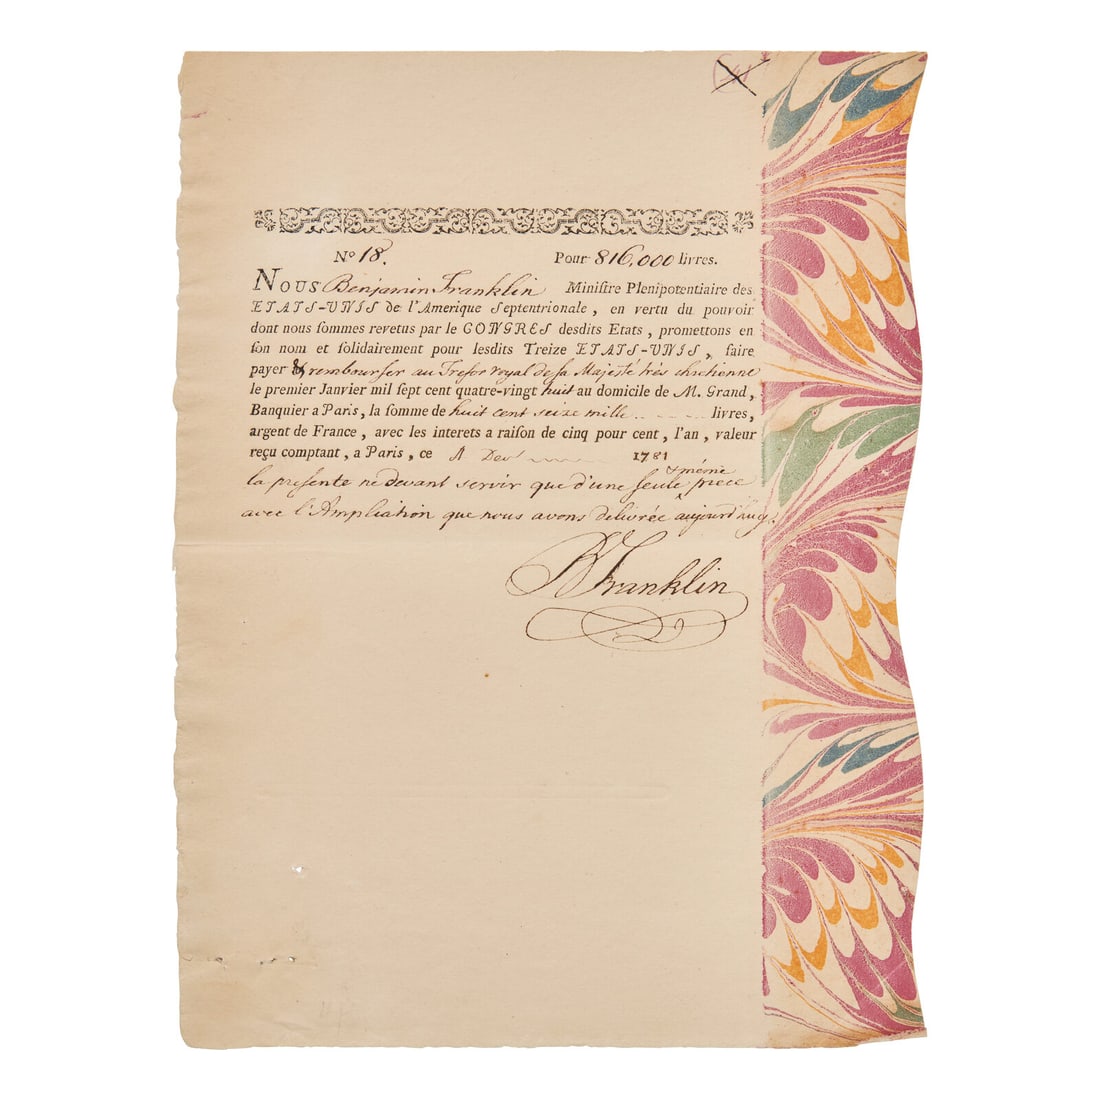 Nº 18. Pour 816,000 livres.
NOUS Benjamin Franklin Miniſtre Plenipotentiaire des
ETATS-UNIS de l'Amerique Septentrionale, en vertu du pouvoir
dont nous ſommes revetus par le CONGRES desdits Etats, promettons en
ſon nom et ſolidairement pour lesdits Treize ETATS-UNIS, faire
payer & rembourſer au Treſor royal de ſa Majesté très chretienne
le premier Janvier mil ſept cent quatre-vingt huit au domicile de M. Grand,
Banquier a Paris, la ſomme de huit cent seize mille livres,
argent de France, avec les interets a raiſon de cinq pour cent, l'an, valeur
reçu comptant, a Paris, ce 1781
la preſente ne devant servir que d'une ſeule & même piece
avec l'Ampliation que nous avons délivrée aujourd'huy.
B Franklin